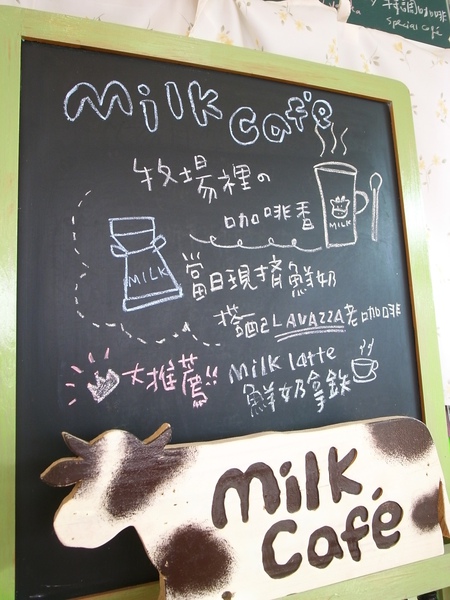 特調咖啡
Special Café
Milk Café
牧場裡の
咖啡香
MILK
MILK
當日現擠鮮奶
搭配LAVAZZA老咖啡
大推薦!!
Milk latte
鮮奶拿鐵
milk
Café